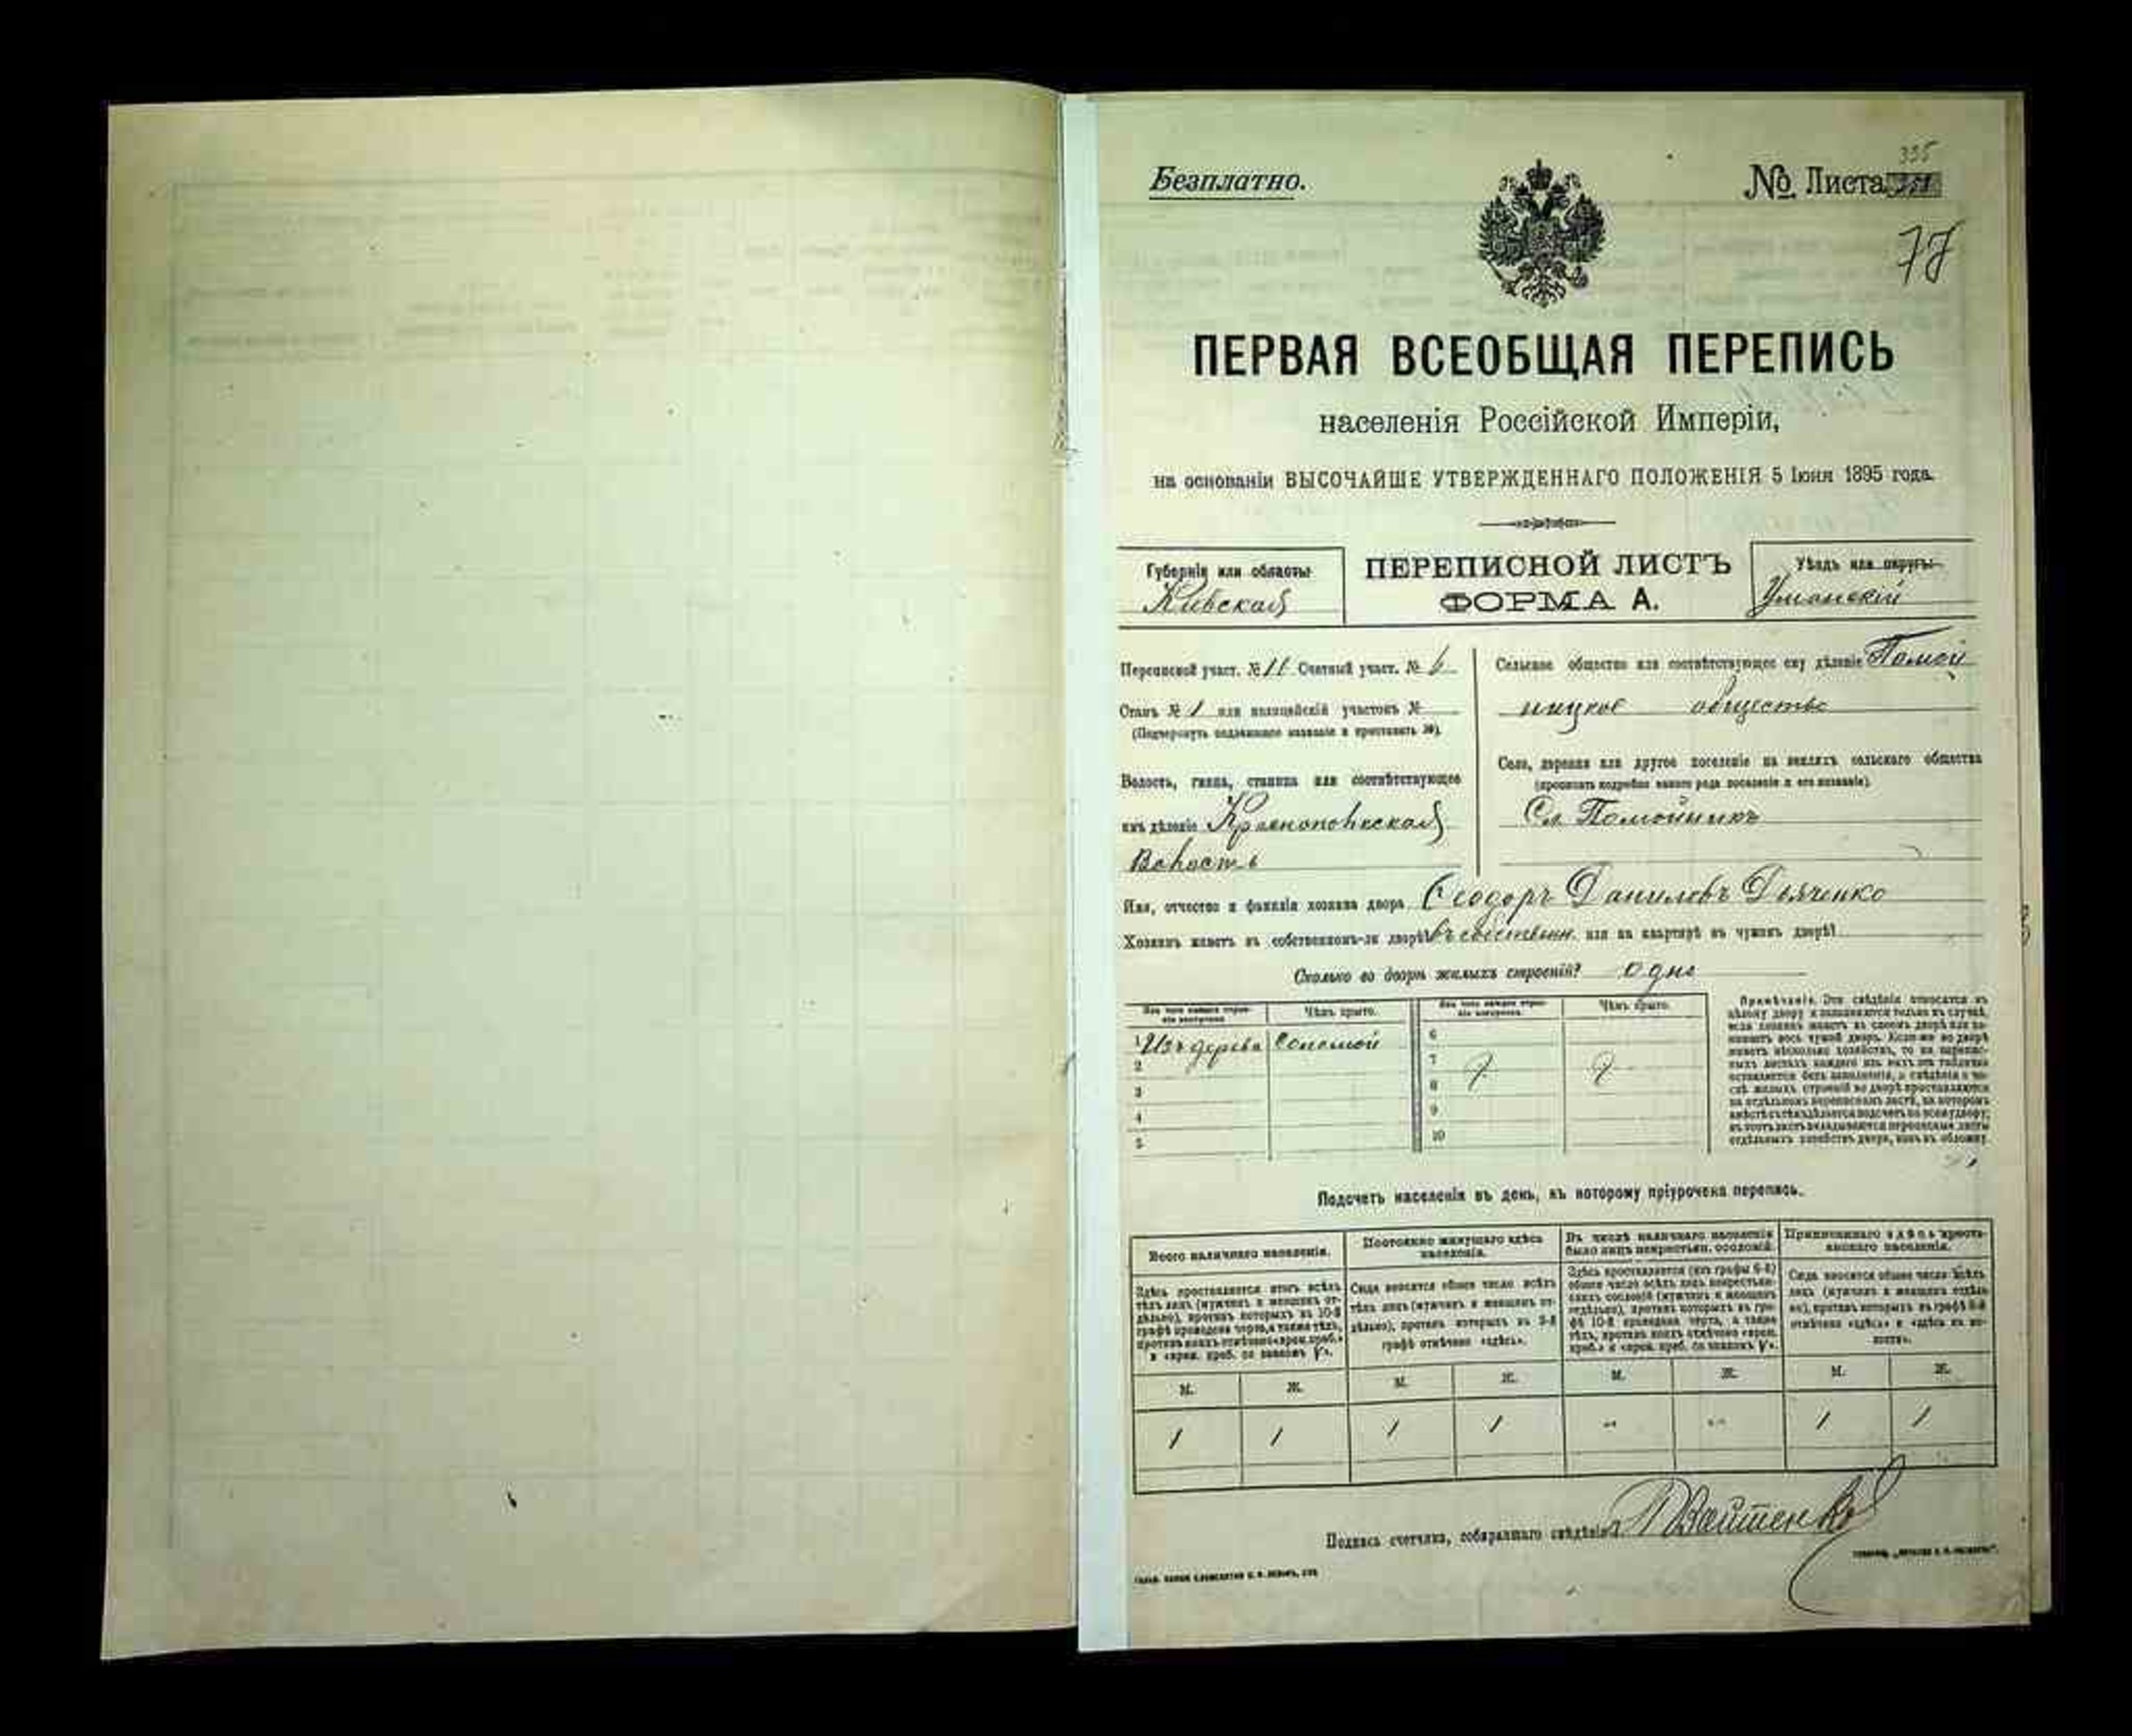 Безплатно.
№ Листа
335
77
ПЕРВАЯ ВСЕОБЩАЯ ПЕРЕПИСЬ
населенія Россійской Имперіи,
на основаніи ВЫСОЧАЙШЕ УТВЕРЖДЕННАГО ПОЛОЖЕНІЯ 5 Іюня 1895 года.
Губернія или область
Кивская
ПЕРЕПИСНОЙ ЛИСТЪ
ФОРМА А.
Уѣздъ или округъ
Уманскій
Переписной участ. № 11 Счетный участ. № 6
Станъ № 1 или полицейскій участокъ №
(Подчеркнуть подлежащее названіе и проставить №).
Волость, гмина, станица или соотвѣтствующее
имъ дѣленіе Краснопольская
Волость
Сельское общество или соотвѣтствующее ему дѣленіе Помой
ницкое общество
Село, деревня или другое поселеніе на земляхъ сельскаго общества
(прописать подробно какого рода поселеніе и его названіе).
Сл. Помойникъ
Имя, отчество и фамилія хозяина двора Феодоръ Даниловъ Дьяченко
Хозяинъ живетъ въ собственномъ-ли дворѣ? въ собствен. или на квартирѣ въ чужомъ дворѣ?
Сколько во дворѣ жилыхъ строеній? одно
Изъ чего каждое строеніе построено
Чѣмъ крыто.
Изъ чего каждое строеніе построено
Чѣмъ крыто.
1 Изъ дерева Соломой 6
2 7
3 8
4 9
5 10
Примѣчаніе. Эти свѣдѣнія относятся къ
цѣлому двору и заполняются только въ случаѣ,
если хозяинъ живетъ въ своемъ дворѣ или за-
нимаетъ весь чужой дворъ. Если-же во дворѣ
живетъ нѣсколько хозяйствъ, то на перепис-
ныхъ листахъ каждаго изъ нихъ эта табличка
оставляется безъ заполненія, а свѣдѣнія о чи-
слѣ жилыхъ строеній во дворѣ проставляются
на отдѣльномъ переписномъ листѣ, на которомъ
вмѣстѣ съ тѣмъ дѣлается подсчетъ по всему двору;
въ этотъ листъ вкладываются переписные листы
отдѣльныхъ хозяйствъ двора, какъ въ обложку.
Подсчетъ населенія въ день, къ которому пріурочена перепись.
Всего наличнаго населенія.
Здѣсь проставляется итогъ всѣхъ
тѣхъ лицъ (мужчинъ и женщинъ от-
дѣльно), противъ которыхъ въ 10-й
графѣ проведена черта, а также тѣхъ,
противъ коихъ отмѣчено «врем. преб.»
и «врем. преб. со знакомъ V».
Постоянно живущаго здѣсь
населенія.
Сюда вносится общее число всѣхъ
тѣхъ лицъ (мужчинъ и женщинъ от-
дѣльно), противъ которыхъ въ 9-й
графѣ отмѣчено «здѣсь».
Въ числѣ наличнаго населенія
было лицъ некрестьян. сословій.
Здѣсь проставляется (изъ графы 6-й)
общее число всѣхъ лицъ некрестьян-
скихъ сословій (мужчинъ и женщинъ
отдѣльно), противъ которыхъ въ гра-
фѣ 10-й проведена черта, а также
тѣхъ, противъ коихъ отмѣчено «врем.
преб.» и «врем. преб. со знакомъ V».
Приписаннаго здѣсь кресть-
янскаго населенія.
Сюда вносится общее число всѣхъ
лицъ (мужчинъ и женщинъ отдѣль-
но), противъ которыхъ въ графѣ 8-й
отмѣчено «здѣсь» и «здѣсь въ во-
лости».
М. Ж. М. Ж. М. Ж. М. Ж.
1 1 1 1 - - 1 1
Подпись счетчика, собиравшаго свѣдѣнія